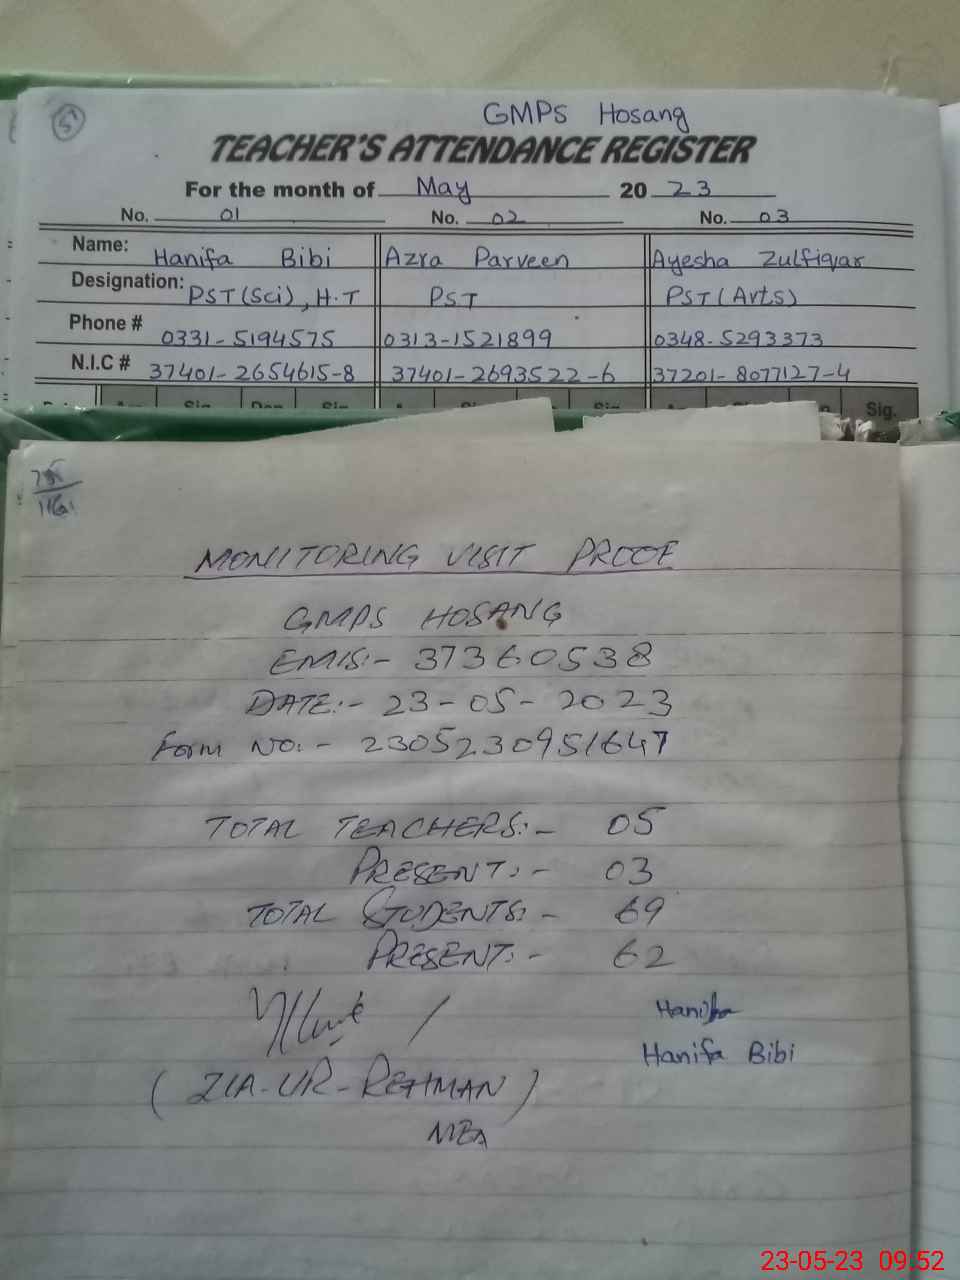 5
GMPS Hosang
TEACHER'S ATTENDANCE REGISTER
For the month of May 20 23
No. 01 No. 02 No. 03
Name: Hanifa Bibi Azra Parveen Ayesha Zulfiqar
Designation: PST(Sci), H.T PST PST(Arts)
Phone # 0331-5194575 0313-1521899 0348-5293373
N.I.C # 37401-2654615-8 37401-2693522-6 37201-8077127-4
Sig. Dep Sig. Sig. Sig.
MONITORING VISIT PROOF
GMPS HOSANG
EMIS:- 37360538
DATE:- 23-05-2023
Form NO:- 2305230951647
TOTAL TEACHERS:- 05
PRESENT:- 03
TOTAL STUDENTS:- 69
PRESENT:- 62
Hanifa
Hanifa Bibi
(ZIA-UR-REHMAN)
MEA
23-05-23 09:52